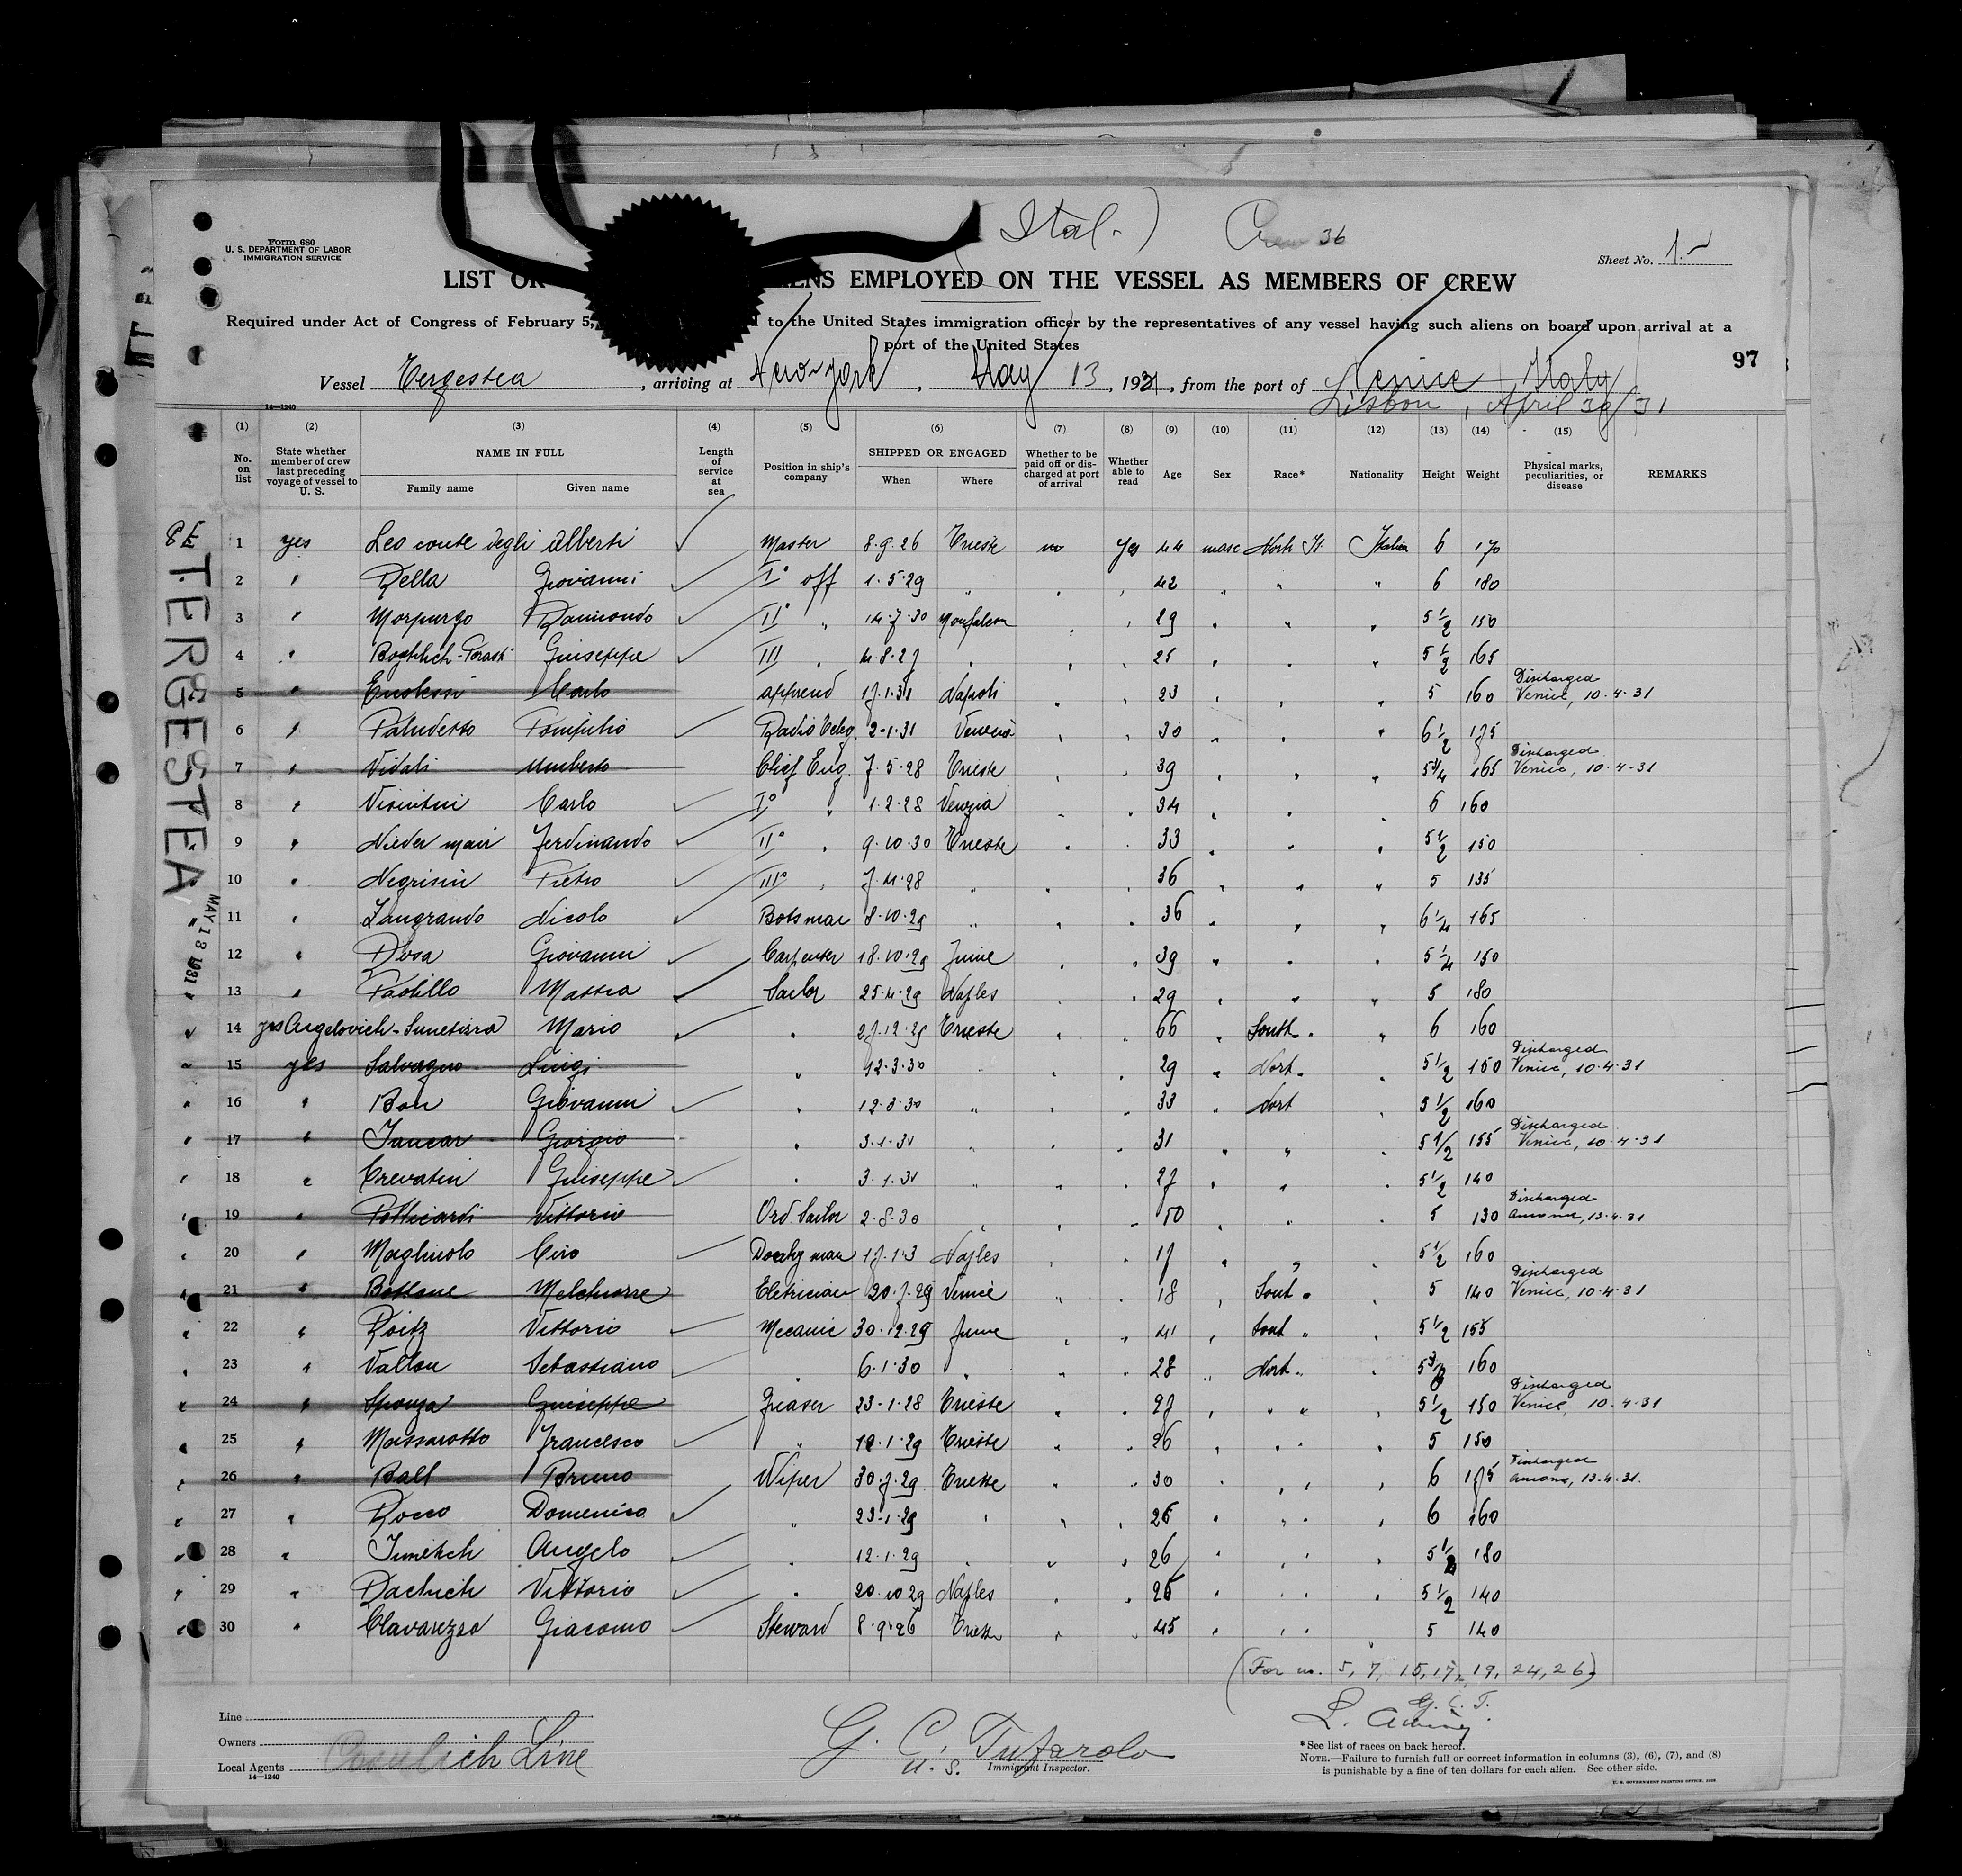 (Ital.) Crew 36
Form 680
U. S. DEPARTMENT OF LABOR
IMMIGRATION SERVICE
Sheet No. 1.-
LIST OR ENS EMPLOYED ON THE VESSEL AS MEMBERS OF CREW
Required under Act of Congress of February 5, to the United States immigration officer by the representatives of any vessel having such aliens on board upon arrival at a
port of the United States
97
Vessel Tergestea, arriving at New-York, May 13, 1931, from the port of Venice Italy
Lisbon, April 30/31
14—1240
(1) (2) (3) (4) (5) (6) (7) (8) (9) (10) (11) (12) (13) (14) (15)
No. on list State whether member of crew last preceding voyage of vessel to U. S. NAME IN FULL Family name Given name Length of service at sea Position in ship's company SHIPPED OR ENGAGED When Where Whether to be paid off or discharged at port of arrival Whether able to read Age Sex Race* Nationality Height Weight Physical marks, peculiarities, or disease REMARKS
78
TERGESTEA
MAY 13 1931
1 yes Leo conte degli Alberti Master 8.9.26 Trieste no Yes 44 masc North It. Italian 6 170
2 " Della Giovanni I° off 1.5.29 " 42 " " 6 180
3 " Morpurgo Raimondo II° " 14.7.30 Monfalcon 29 " " 5 1/2 150
4 " Giuseppe III " 4.8.27 " 25 " " 5 1/2 165
5 " Carlo apprend 17.1.31 Napoli 23 " " 5 160 Discharged Venice, 10-4-31
6 " Paludetto Pompilio Radio Teleg. 2-1-31 Venezia 30 " " 6 1/2 175
7 " Vidali Umberto Chief Eng. 7.5.28 Trieste 39 " " 5 3/4 165 Discharged Venice, 10-4-31
8 " Visintini Carlo I° " 1.2.28 Venezia 34 " " 6 160
9 " Nieder mair Ferdinando II° " 9.10.30 Trieste 33 " " 5 1/2 150
10 " Negrisin Pietro III° " 7.4.28 " 36 " " 5 135
11 " Zangrando Nicolo Botsman 8.10.29 " 36 " " 6 1/4 165
12 " Giovanni Carpenter 18.10.29 Fiume 39 " " 5 1/4 150
13 " Paolillo Mattea Sailor 25.4.29 Naples 29 " " 5 180
14 yes Mario " 27.12.29 Trieste 66 " South " " 6 160
15 yes Salvagno Luigi " 12.3.30 29 " Nort " " 5 1/2 150 Discharged Venice, 10-4-31
16 " Bon Giovanni " 12.3.30 " 33 " Nort " 5 1/2 160
17 " Giorgio " 3.1.31 " 31 " " 5 1/2 155 Discharged Venice, 10-4-31
18 " Crevatin Giuseppe " 3.1.31 " 27 " " 5 1/2 140
19 " Vittorio Ord Sailor 2.8.30 " " 5 130 Discharged Ancona, 13-4-31
20 " Magliuolo Ciro 17.1.3 Naples 17 " " 5 1/2 160
21 " Bottone Melchiorre Eletrician 20.7.29 Venice 18 " Sout " " 5 140 Discharged Venice, 10-4-31
22 " Roitz Vittorio Mecanic 30.12.29 Fiume 41 " Sout " " 5 1/2 155
23 " Vallon Sebastiano " 6.1.30 " 28 " Nort " " 160
24 " Sponza Giuseppe Greaser 23-1-28 Trieste 27 " " 5 1/2 150 Discharged Venice, 10-4-31
25 " Massarotto Francesco " 12.1.29 Trieste 26 " " 5 150
26 " Ball Bruno Wiper 30.7.29 Trieste 30 " " 6 175 Discharged Ancona, 13-4-31.
27 " Rocco Domenico " 23-1-29 " 26 " " 6 160
28 " Angelo " 12.1.29 " 26 " " 5 1/2 180
29 " Vittorio " 20.10 29 Naples 26 " " 5 1/2 140
30 " Giacomo Steward 8.9.26 Trieste 45 " " 5 140
(For no. 5, 7, 15, 17, 19, 24, 26)
G. C. T.
Line
Owners
Local Agents Cosulich Line
14—1240
G. C. Tufarolo
U. S. Immigrant Inspector.
*See list of races on back hereof.
NOTE.—Failure to furnish full or correct information in columns (3), (6), (7), and (8)
is punishable by a fine of ten dollars for each alien. See other side.